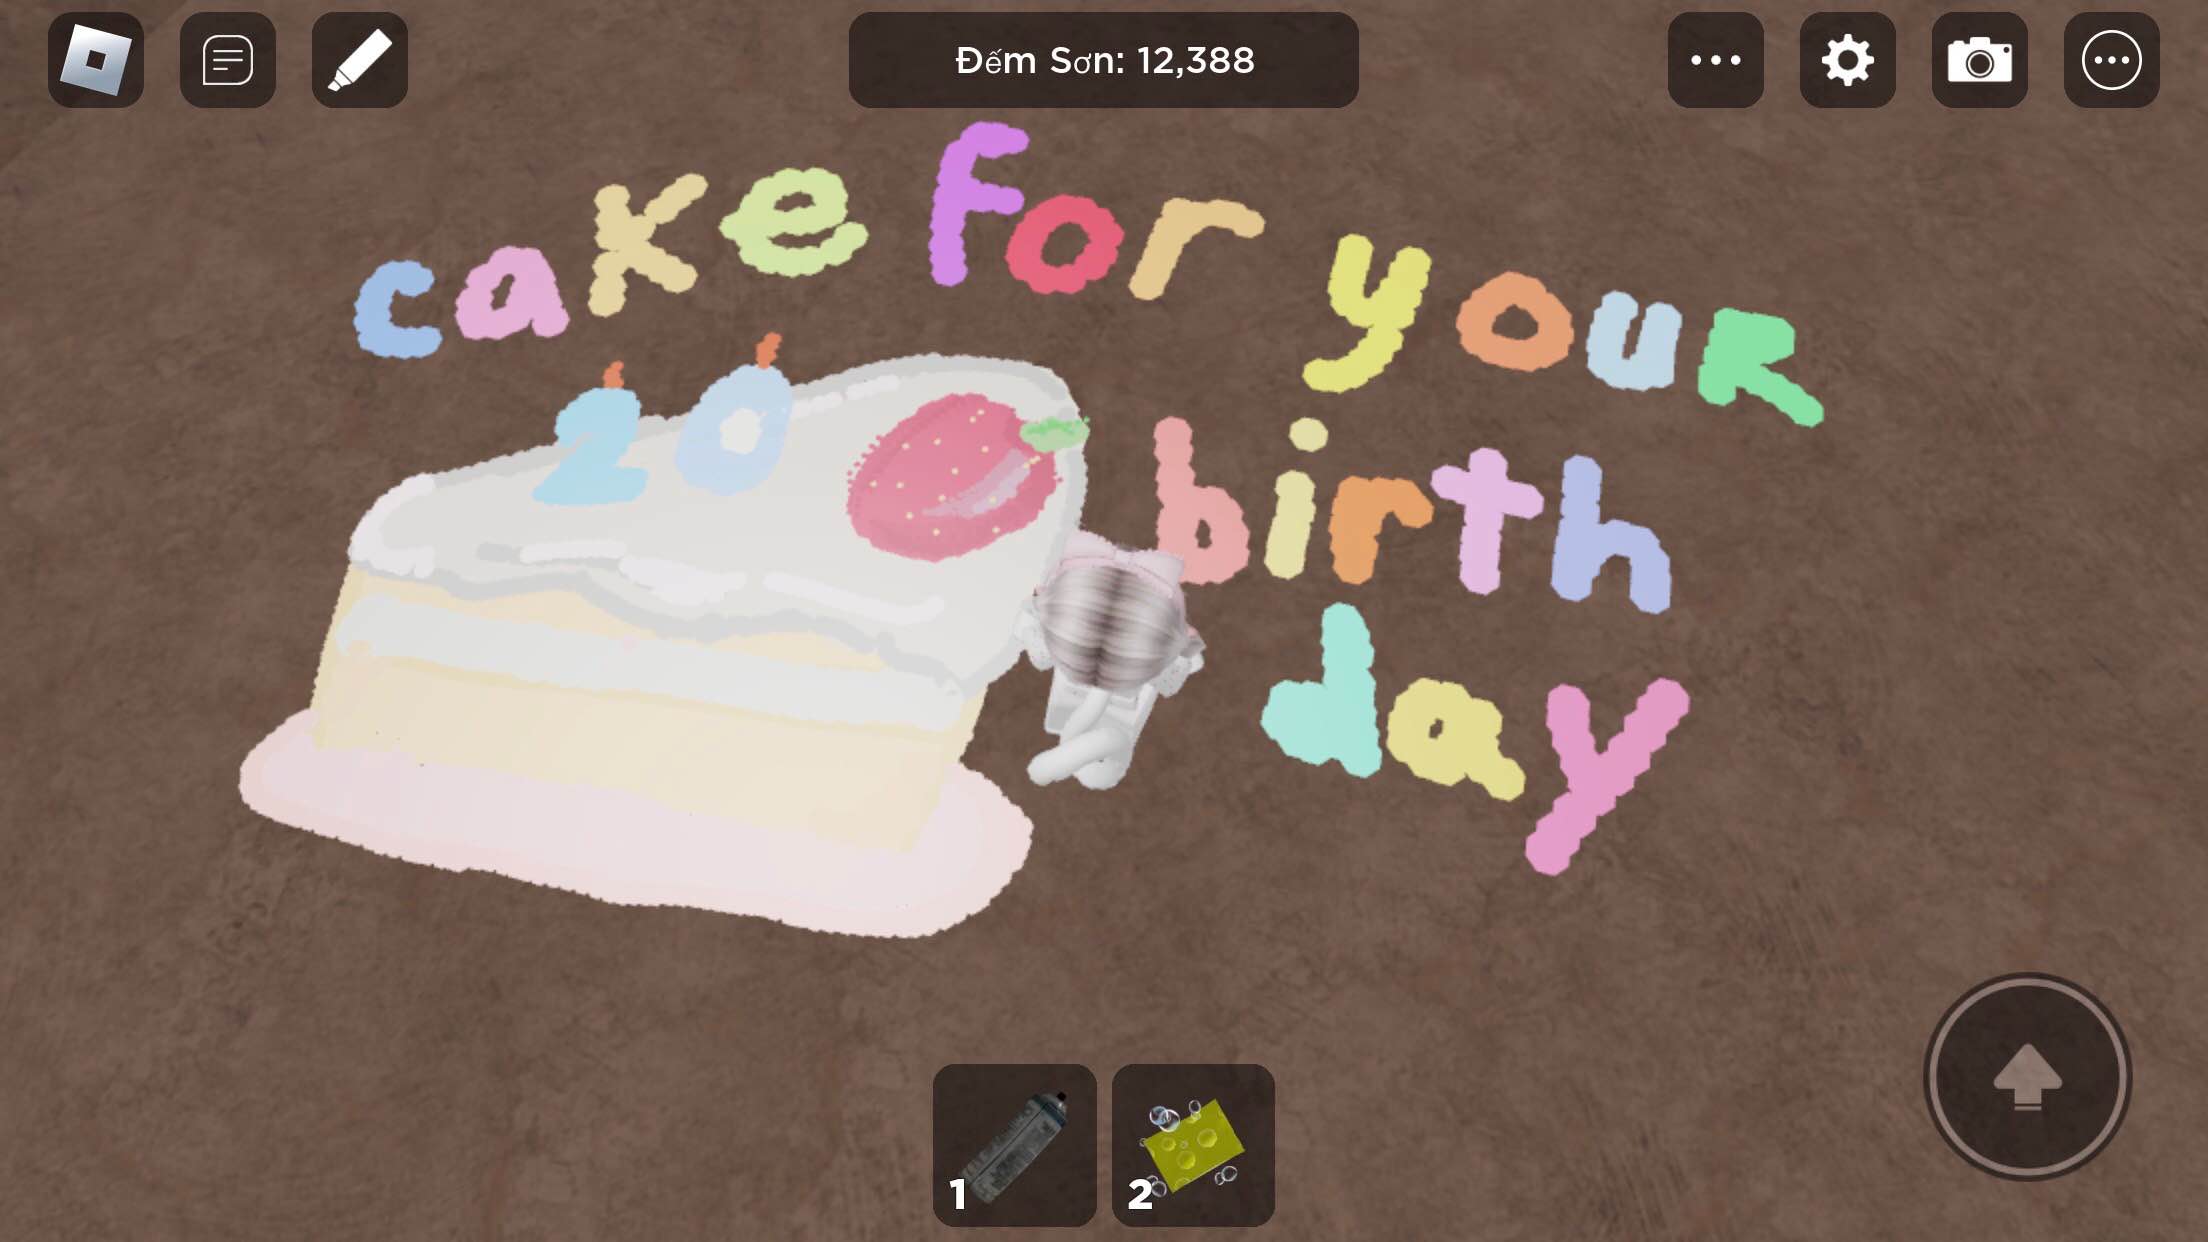 Đếm Sơn: 12,388
cake for youR
20
birth
day
1
2